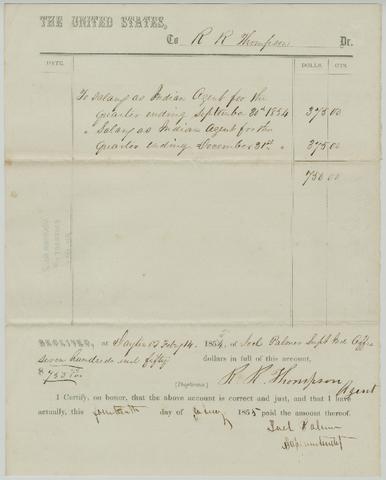 THE UNITED STATES,
To R R Thompson Dr.
DATE. DOLLS. CTS.
To Salary as Indian Agent for the
Quarter ending September 30th 1854 375 00
" Salary as Indian Agent for the
Quarter ending December 31st " 375 00
750 00
RECEIVED, at Dayton OT Feby 14. 1855, of Joel Palmer Supt Ind Affrs
seven hundred and fifty dollars in full of this account,
R. R. Thompson
[Duplicate.] Agent
I Certify, on honor, that the above account is correct and just, and that I have
actually, this fourteenth day of Feby 1855 paid the amount thereof.
Joel Palmer
Superintendent